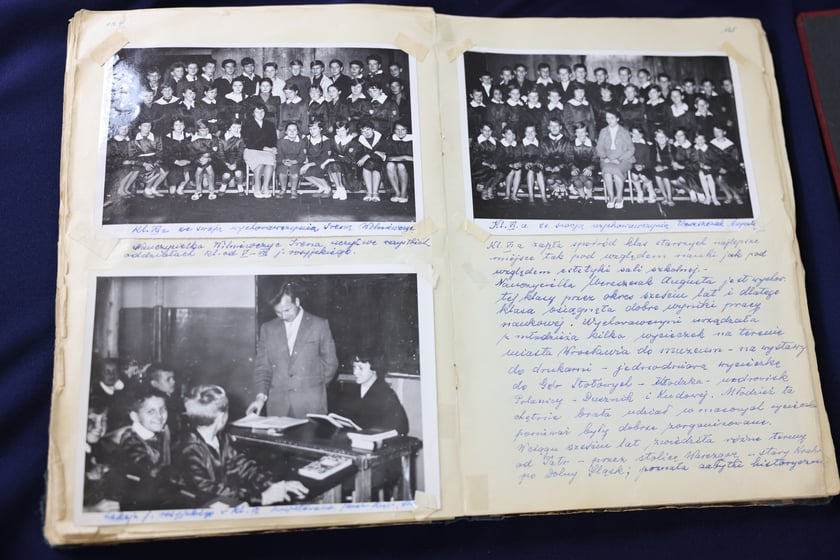 Kl. VIIa ze swoją wychowawczynią Ireną Wilniewczyc
Nauczycielka Wilniewczyc Irena uczy we wszystkich
oddziałach kl. od V-VII j. rosyjskiego.
Lekcja j. rosyjskiego w kl. VI
Kl. VI.a ze swoją wychowawczynią
Kl. VI.a zajęła spośród klas starszych najlepsze
miejsce tak pod względem nauki jak pod
względem estetyki sali szkolnej.-
Nauczycielka Wereszczak Augusta jest wychow.
tej klasy przez okres sześciu lat i dlatego
klasa osiągnęła dobre wyniki pracy
naukowej. Wychowawczyni urządzała
z młodzieżą kilka wycieczek na terenie
miasta Wrocławia do muzeum - na wystawy
do drukarni - jednodniową wycieczkę
do Gór Stołowych - Kłodzka - uzdrowisk
Polanicy - Dusznik i Kudowej. Młodzież ta
chętnie brała udział w masowych wycieczkach
ponieważ były dobrze zorganizowane.
W ciągu sześciu lat zwiedziła różne tereny
od Tatr - przez stolicę Warszawę - stary Kraków
po Dolny Śląsk; poznała zabytki historyczne